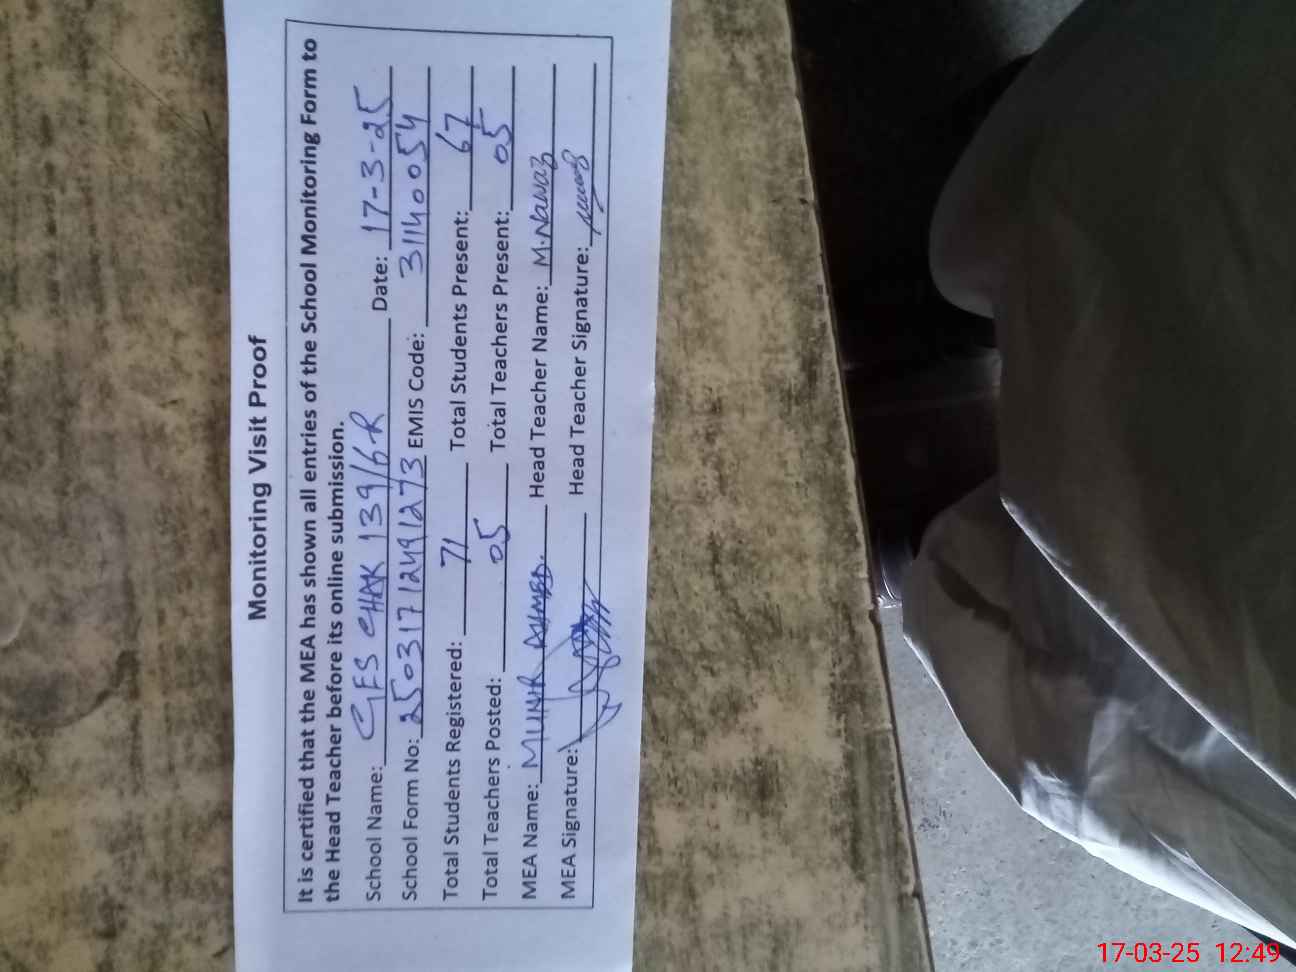 Monitoring Visit Proof
It is certified that the MEA has shown all entries of the School Monitoring Form to
the Head Teacher before its online submission.
School Name: GES CHAK 139/6-R Date: 17-3-25
School Form No: 25031712491273 EMIS Code: 31140054
Total Students Registered: 71 Total Students Present: 67
Total Teachers Posted: 05 Total Teachers Present: 05
MEA Name: MUNIR AHMED. Head Teacher Name: M.Nawaz
MEA Signature: Head Teacher Signature:
17-03-25 12:49